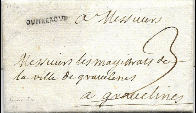 DUNKERQUE
a Messieurs
Messieurs les magistrats de
la ville de gravelines
a gravelines
3